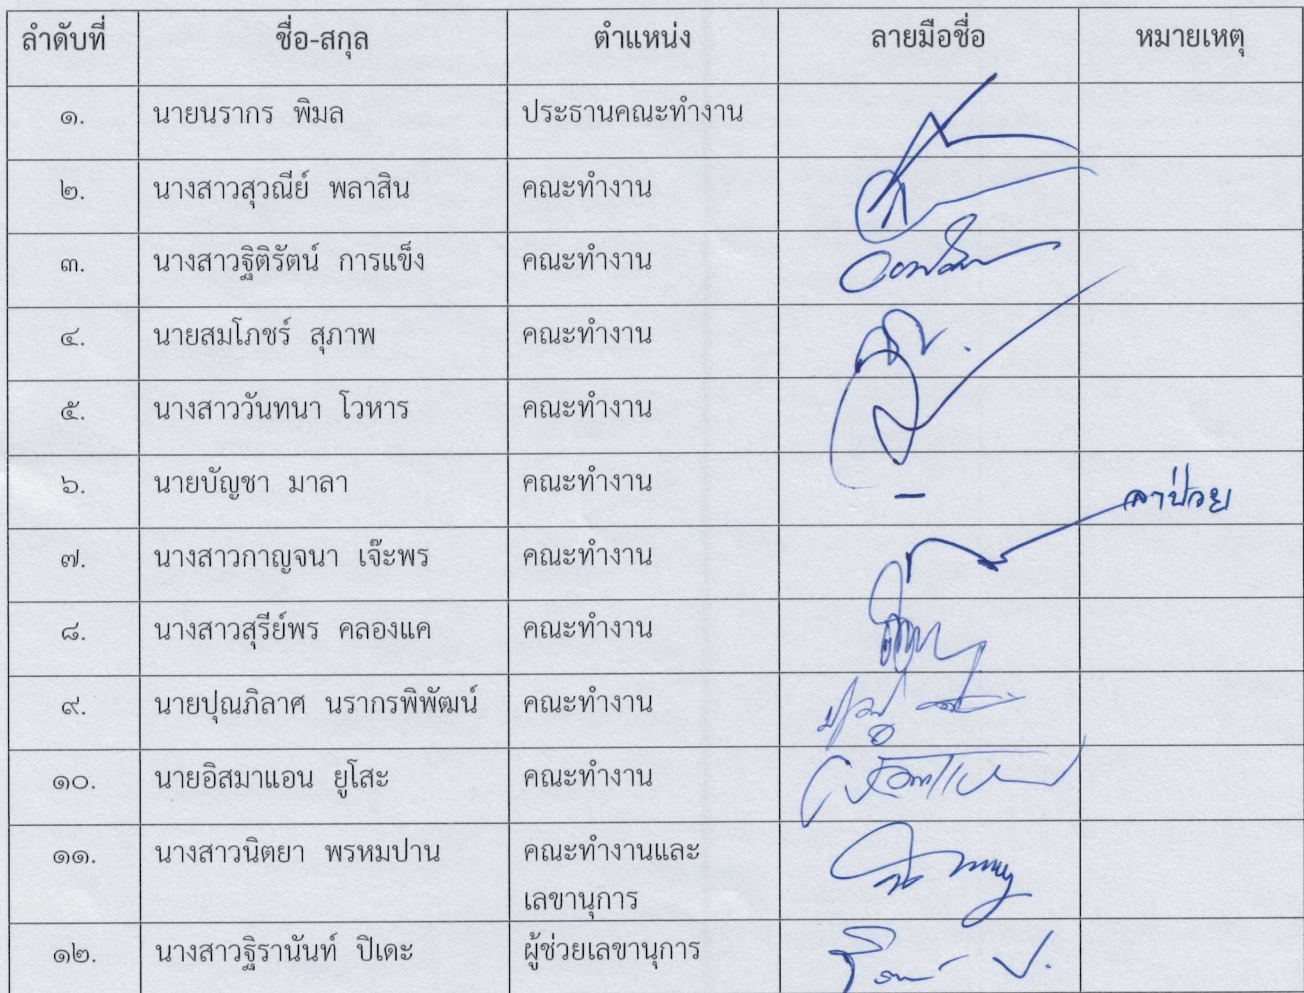 ลำดับที่ ชื่อ-สกุล ตำแหน่ง ลายมือชื่อ หมายเหตุ
๑. นายนรากร พิมล ประธานคณะทำงาน
๒. นางสาวสุวณีย์ พลาสิน คณะทำงาน
๓. นางสาวฐิติรัตน์ การแข็ง คณะทำงาน
๔. นายสมโภชร์ สุภาพ คณะทำงาน
๕. นางสาววันทนา โวหาร คณะทำงาน
๖. นายบัญชา มาลา คณะทำงาน – ลาป่วย
๗. นางสาวกาญจนา เจ๊ะพร คณะทำงาน
๘. นางสาวสุรีย์พร คลองแค คณะทำงาน
๙. นายปุณภิลาศ นรากรพิพัฒน์ คณะทำงาน
๑๐. นายอิสมาแอน ยูโสะ คณะทำงาน
๑๑. นางสาวนิตยา พรหมปาน คณะทำงานและ
เลขานุการ
๑๒. นางสาวฐิรานันท์ ปิเดะ ผู้ช่วยเลขานุการ